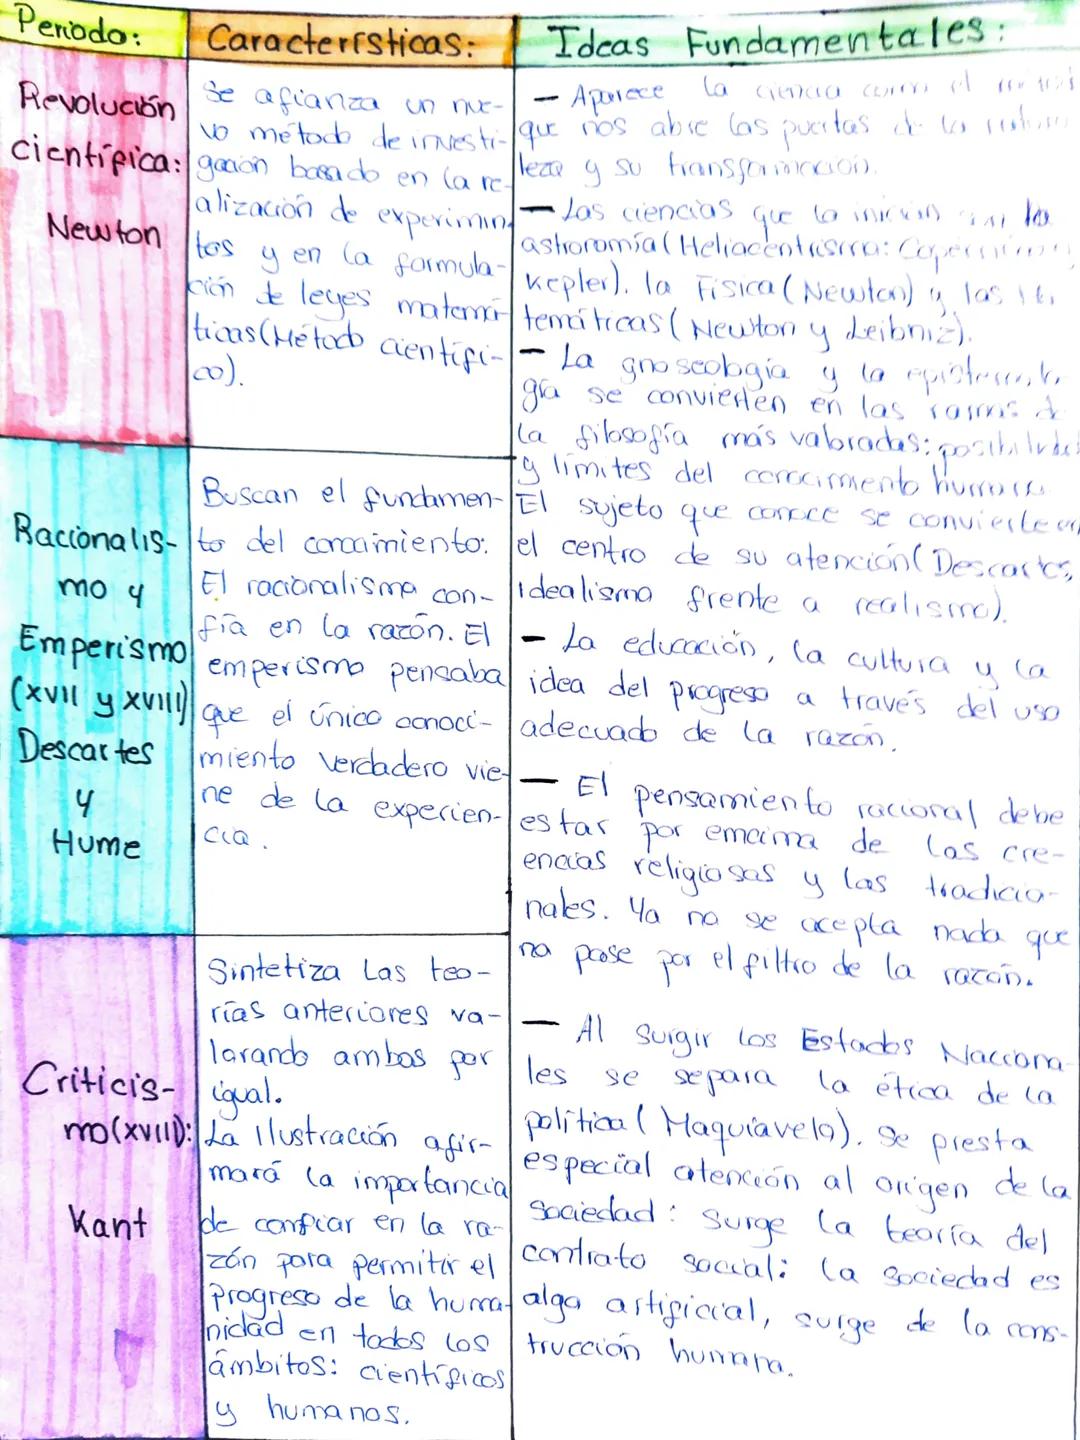 Periodo:
Características:
Ideas Fundamentales:
Revolución
científica:
Newton
Se afianza un nue-
vo método de investi-
gación basado en la re-
alización de experimin
tos y en la formula-
ción de leyes matemá-
ticas (Método científi-
co).
Racionalis-
mo y
Emperismo
(XVII y XVIII)
Descartes
y
Hume
Buscan el fundamen-
to del conocimiento:
El racionalismo con-
fía en la razón. El
emperismo pensaba
que el único conoci-
miento verdadero vie-
ne de la experien-
cia.
Criticis-
mo (XVIII):
Kant
Sintetiza las teo-
rías anteriores va-
lorando ambos por
igual.
La Ilustración afir-
mará la importancia
de confiar en la ra-
zón para permitir el
Progreso de la huma-
nidad en todos los
ámbitos: científicos
y humanos.
— Aparece la ciencia como el
que nos abre las puertas de la
leza y su transformación.
— Las ciencias que lo inician son la
astronomía (Heliocentrismo:
Kepler). la Física (Newton) y las
temáticas (Newton y Leibniz).
— La gnoseología y la
gía se convierten en las ramas de
la filosofía más valoradas:
y límites del conocimiento humano.
El sujeto que conoce se convierte en
el centro de su atención (Descartes,
idealismo frente a realismo).
— La educación, la cultura y la
idea del progreso a través del uso
adecuado de la razón.
— El pensamiento racional debe
estar por encima de las cre-
encias religiosas y las tradicio-
nales. Ya no se acepta nada que
no pase por el filtro de la razón.
— Al surgir los Estados Naciona-
les se separa la ética de la
política (Maquiavelo). Se presta
especial atención al origen de la
Sociedad: Surge la teoría del
contrato social: la sociedad es
algo artificial, surge de la cons-
trucción humana.